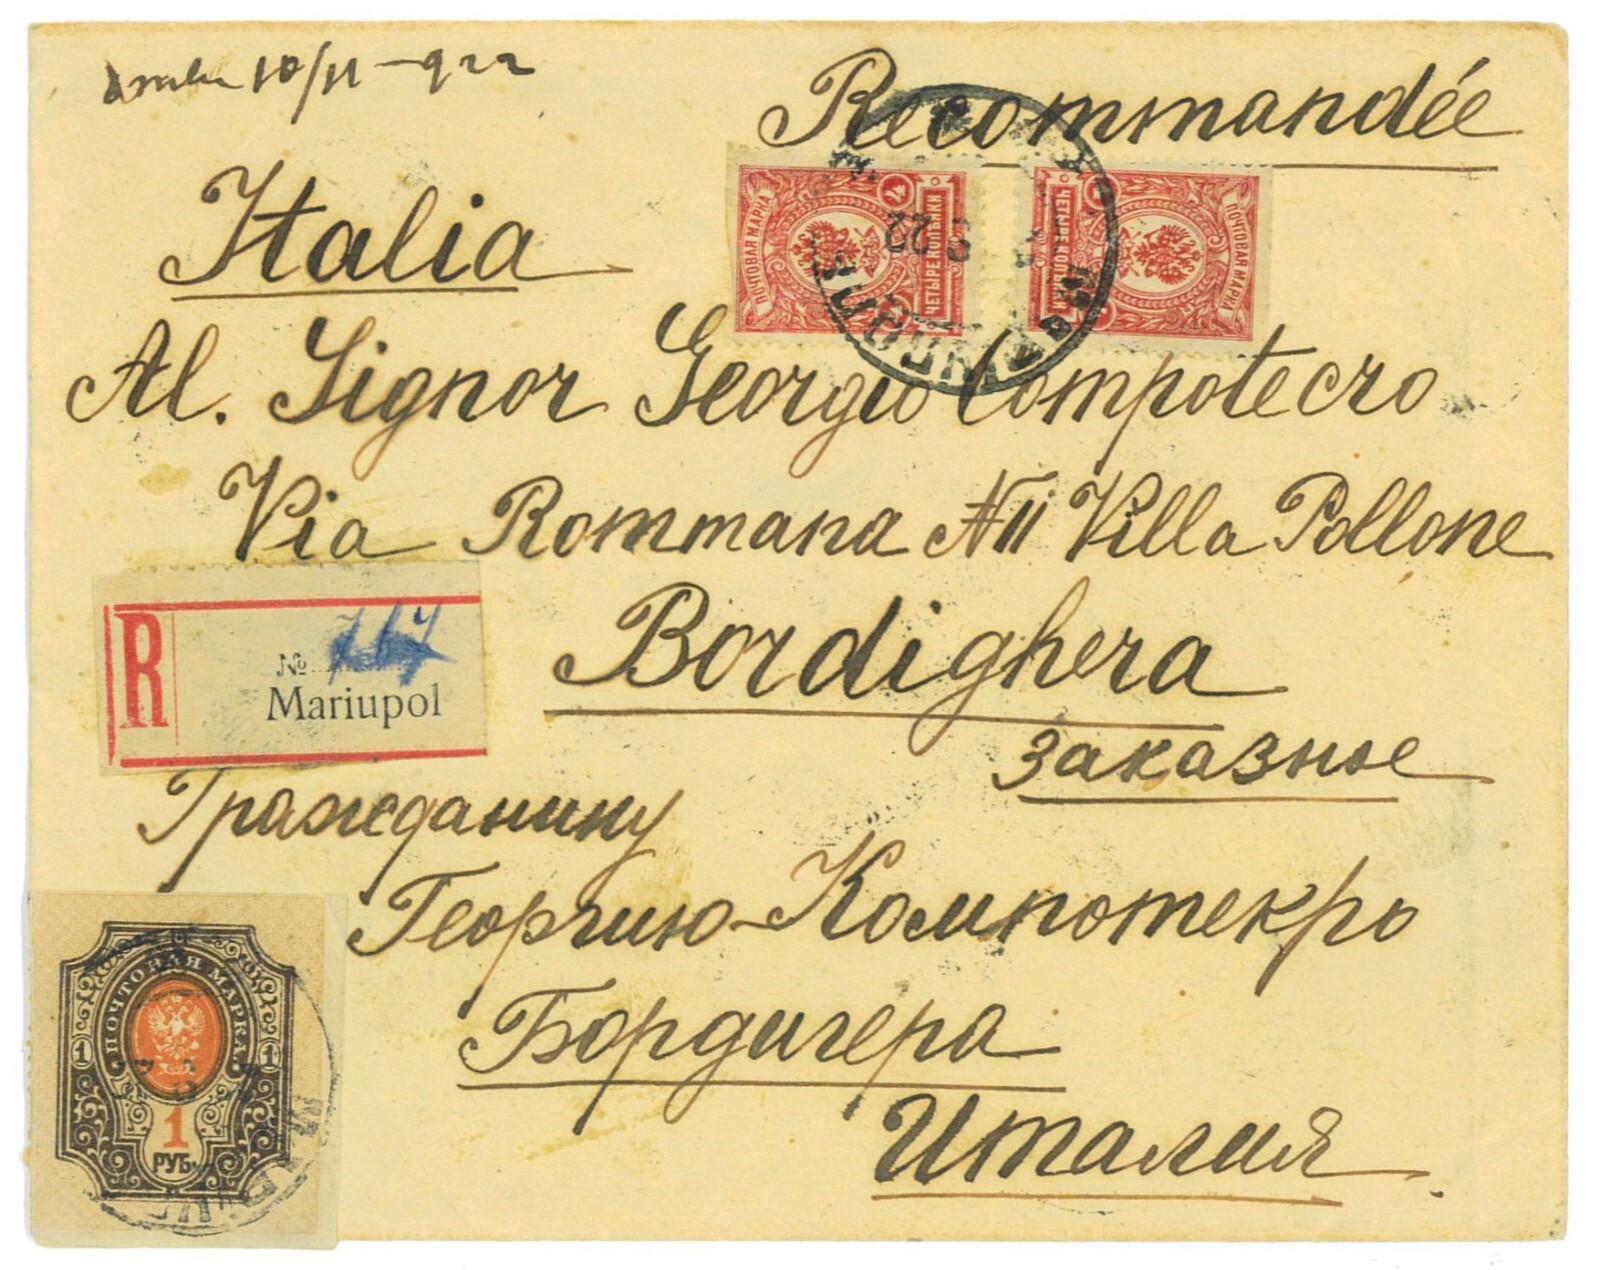 10/11-922
Recommandée
ПОЧТОВАЯ МАРКА 4 ЧЕТЫРЕ КОПѢЙКИ
22
ПОЧТОВАЯ МАРКА
Italia
Al. Signor Georgio Compotecro
Via Rommana N 11 Villa Pollone
R № 767
Mariupol
Bordighera
заказное
Гражданину
Георгию-Компотекро
Бордигера
Италия
ПОЧТОВАЯ МАРКА
1 1
1
РУБ